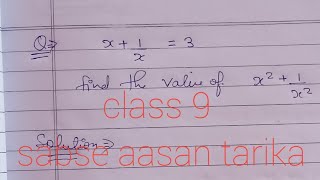 Q⇒ x + 1/x = 3
find the value of x² + 1/x²
class 9
Solution⇒
sabse aasan tarika